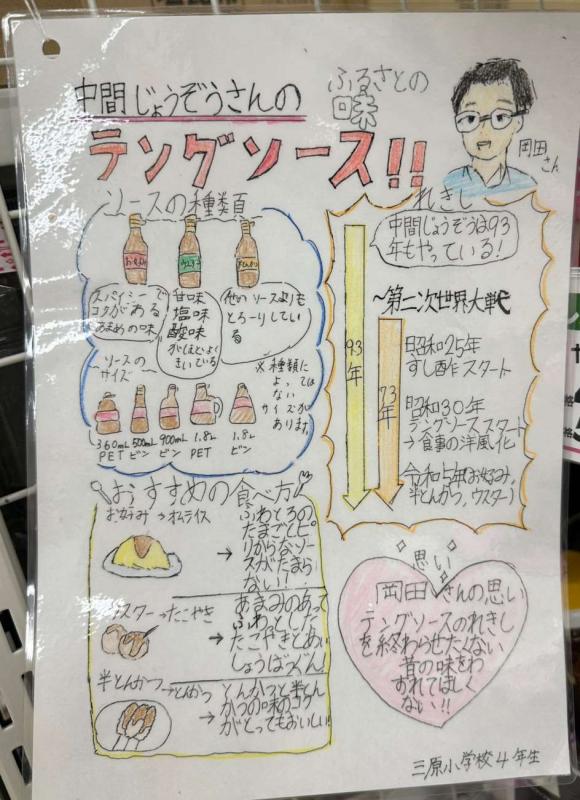 中間じょうぞうさんの
ふるさとの
味
テングソース!!
岡田
さん
ソースの種類
お好み
ウスター
半とんかつ
スパイシーで
コクがある
あまめの味
甘味
塩味
酸味
がほどよく
きいている
他のソースよりも
とろーりしてい
る
ソースの
サイズ
※種類に
よっては
ない
サイズが
あります。
360mL
PET
500mL
ビン
900mL
ビン
1.8L
PET
1.8L
ビン
れきし
中間じょうぞうは93
年もやっている!
~第二次世界大戦
93年
73年
昭和25年
すし酢作スタート
昭和30年
テングソーススタート
→食事の洋風化
令和5年(お好み,
半とんかつ,ウスター)
おすすめの食べ方
お好み→オムライス
→
ふわとろの
たまごとピ
リからなソー
スがたまら
ない!!
ウスター→たこやき
→
あまみのあって
ふわっとした
たこやきとあい
しょうばつぐん!
半とんかつ→とんかつ
→
とんかつと半とん
かつの味のコク
がとってもおいしい!
思い
岡田さんの思い
テングソースのれきし
を終わらせたくない
昔の味をわ
すれてほしく
ない!!
三原小学校4年生